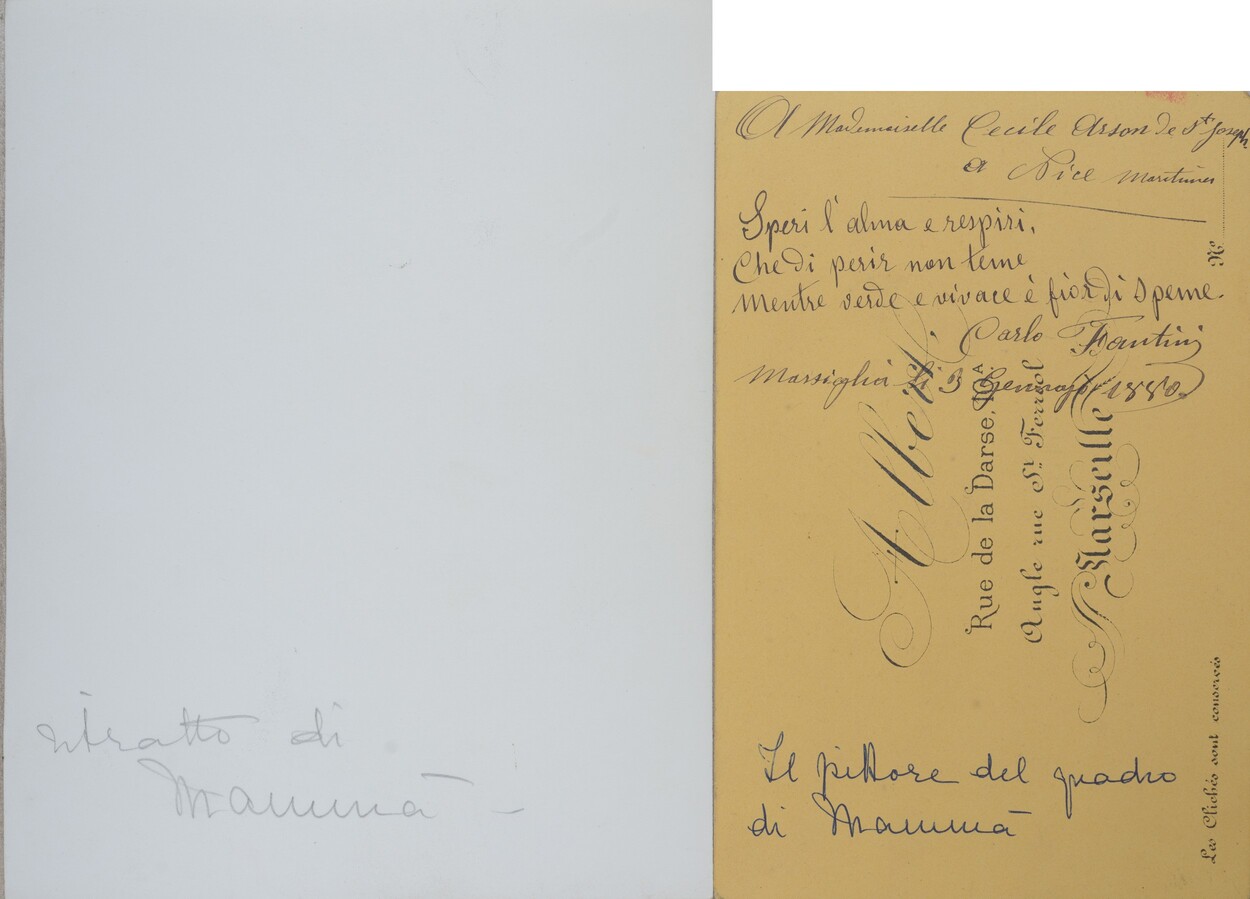 ritratto di
Mammà -
A Mademoiselle Cecile Arson de St Joseph
a Nice Maritimes
Speri l'alma e respiri,
Che di perir non teme
Mentre verde e vivace è fior di speme.
Carlo Fantini
Marsiglia li 3 Gennajo 1880.
No
Albert.
Rue de la Darse, 10A
Angle rue St. Ferréol
Marseille
Les Clichés sont conservés
Il pittore del quadro
di Mammà